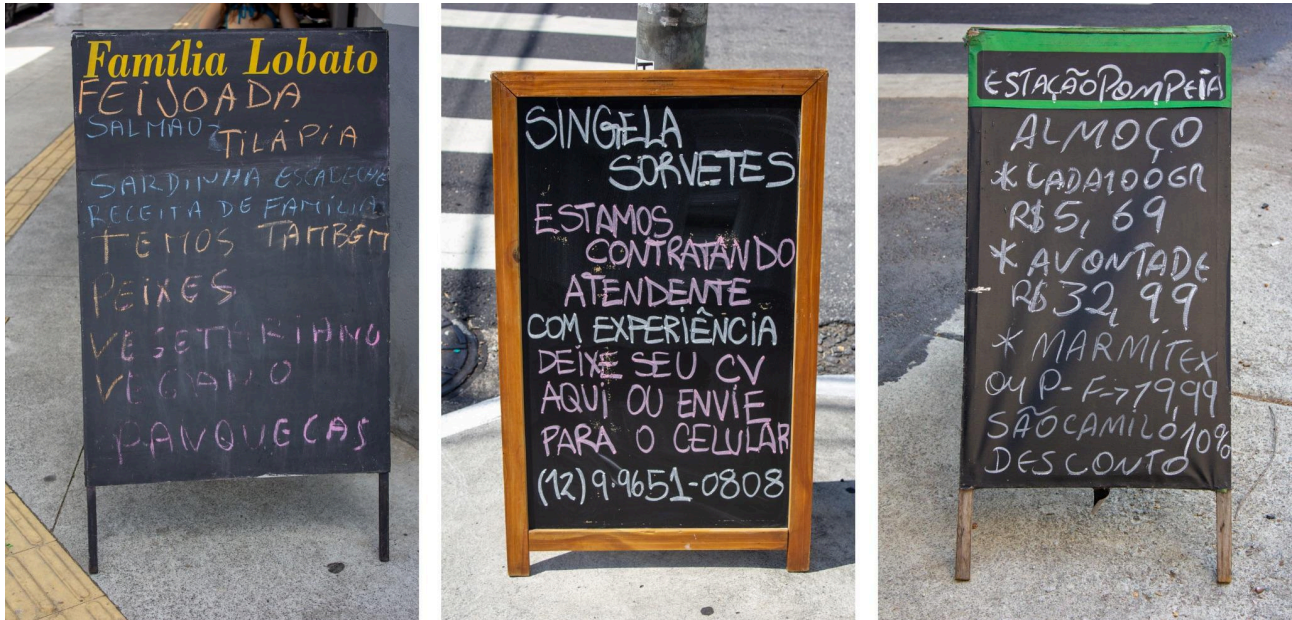 Família Lobato
FEIJOADA
SALMÃO
TILÁPIA
SARDINHA ESCABECHE
RECEITA DE FAMÍLIA
TEMOS TAMBÉM
PEIXES
VEGETERIANO
VEGANO
PANQUECAS
SINGELA
SORVETES
ESTAMOS
CONTRATANDO
ATENDENTE
COM EXPERIÊNCIA
DEIXE SEU CV
AQUI OU ENVIE
PARA O CELULAR
(12) 9.9651-0808
ESTAÇÃO POMPEIA
ALMOÇO
* CADA 100GR
R$ 5,69
* A VONTADE
R$ 32,99
* MARMITEX
OU P-F->19,99
SÃO CAMILO 10%
DESCONTO